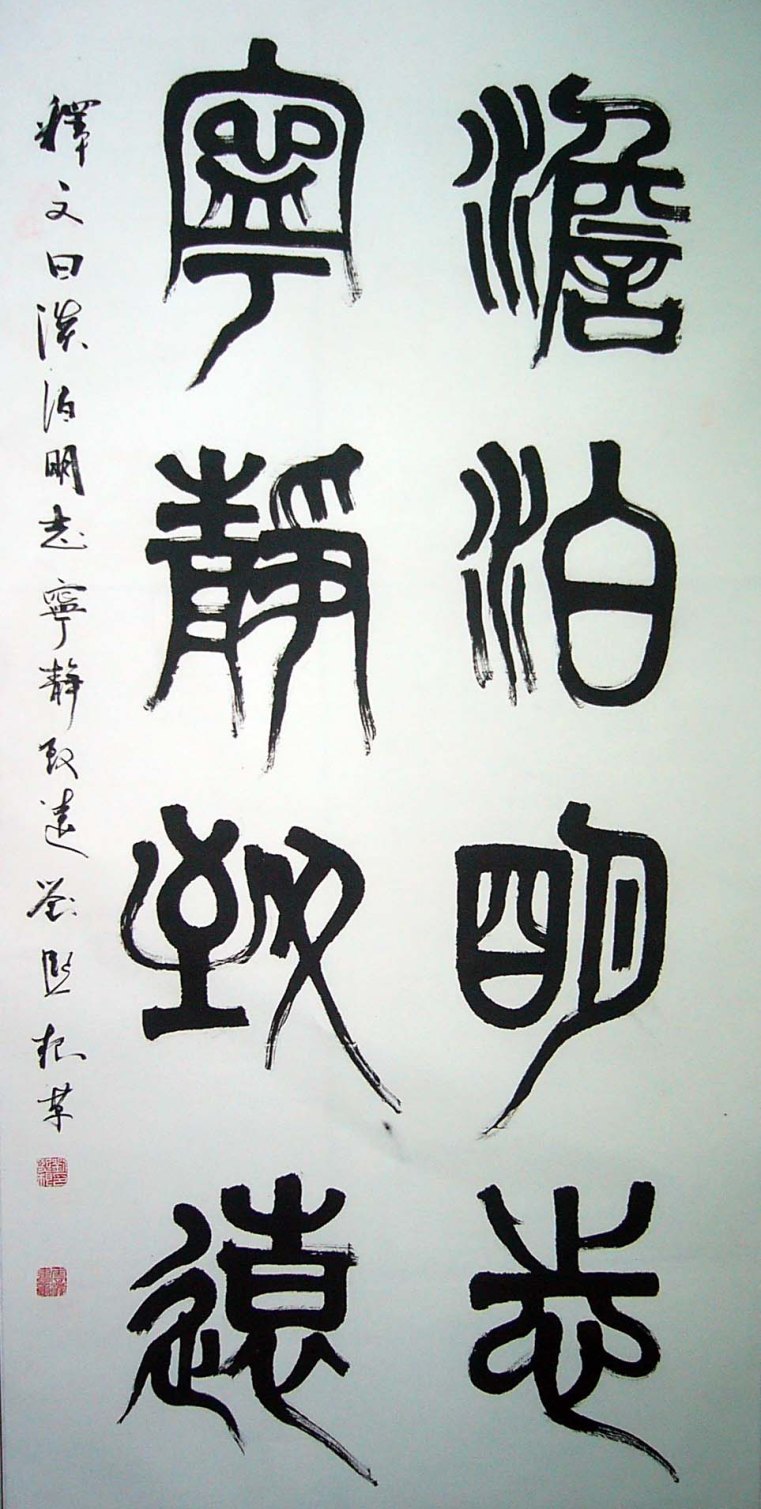 澹泊明志
寧靜致遠
釋文曰淡泊明志寧靜致遠劉